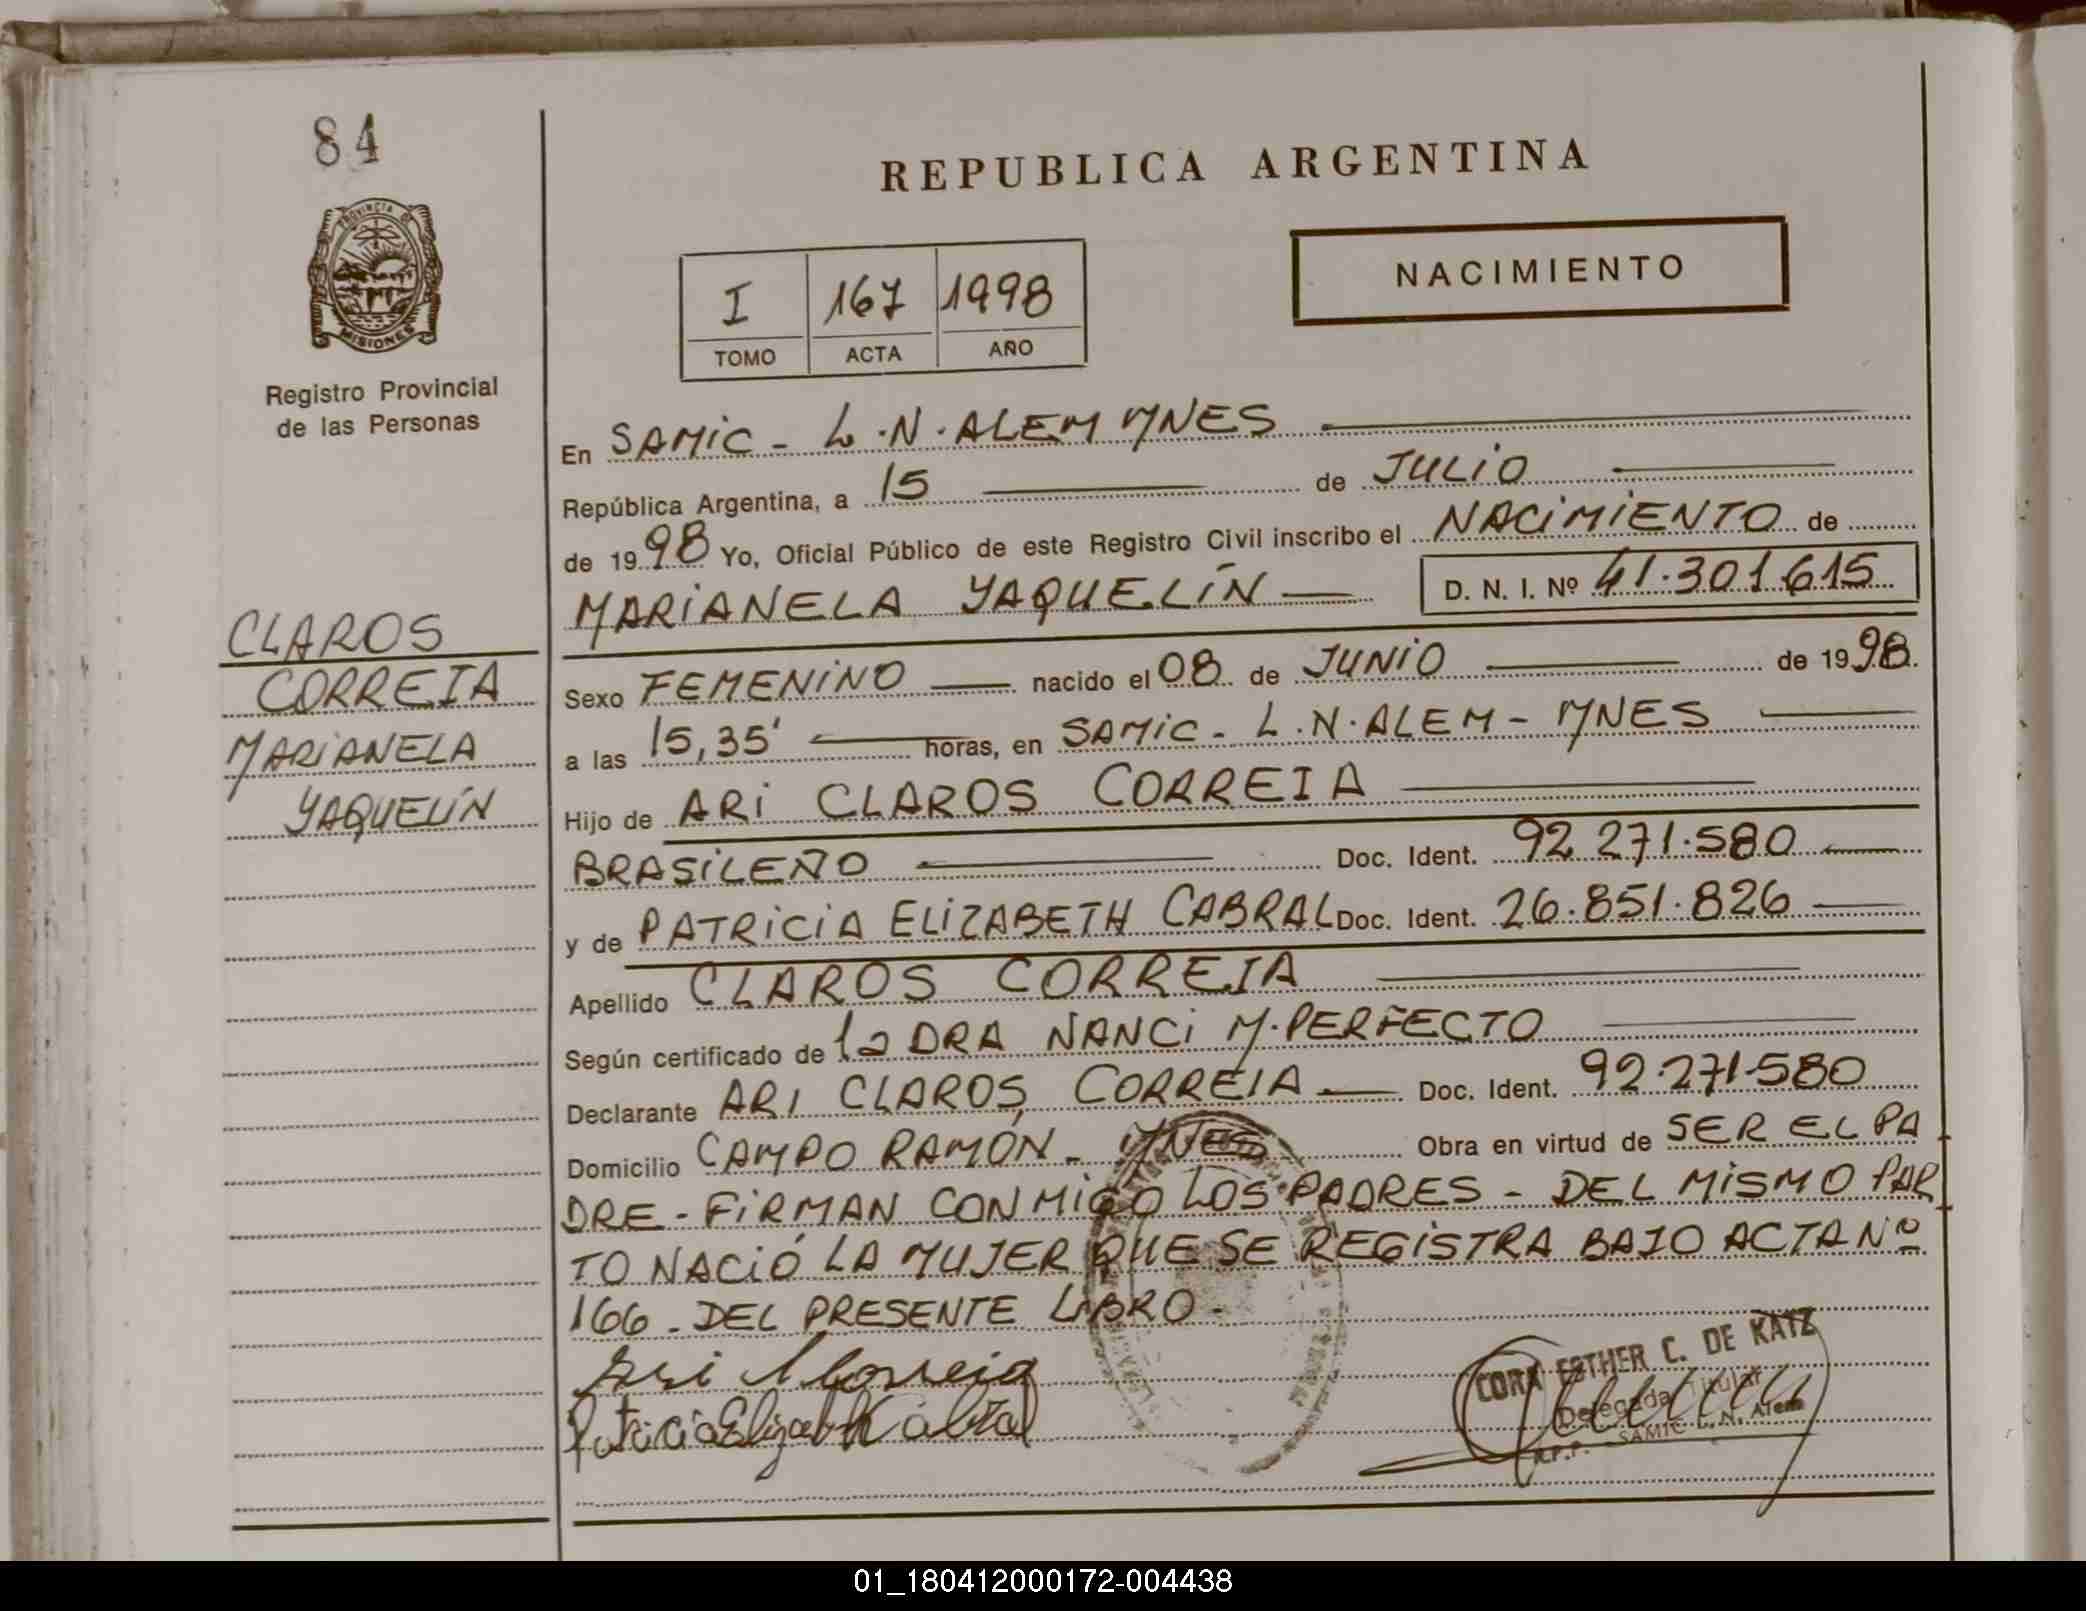 84
PROVINCIA DE
MISIONES
Registro Provincial
de las Personas
CLAROS
CORREIA
MARIANELA
YAQUELÍN
REPUBLICA ARGENTINA
NACIMIENTO
I 167 1998
TOMO ACTA AÑO
En SAMIC - L.N.ALEM MNES
República Argentina, a 15 de JULIO
de 1998 Yo, Oficial Público de este Registro Civil inscribo el NACIMIENTO de
MARIANELA YAQUELÍN D. N. I. Nº 41.301.615
Sexo FEMENINO nacido el 08 de JUNIO de 1998.
a las 15,35' horas, en SAMIC - L.N.ALEM - MNES
Hijo de ARI CLAROS CORREIA
BRASILEÑO Doc. Ident. 92 271.580
y de PATRICIA ELIZABETH CABRAL Doc. Ident. 26.851.826
Apellido CLAROS CORREIA
Según certificado de la DRA NANCI M.PERFECTO
Declarante ARI CLAROS CORREIA Doc. Ident. 92.271.580
Domicilio CAMPO RAMÓN - MNES Obra en virtud de SER EL PA
DRE - FIRMAN CONMIGO LOS PADRES - DEL MISMO PAR
TO NACIÓ LA MUJER QUE SE REGISTRA BAJO ACTA Nº
166 - DEL PRESENTE LIBRO -
Patricia Elizabeth Cabral
CORA ESTHER C. DE KATZ
Delegada Titular
R.P.P. - SAMIC L. N. Alem
01_180412000172-004438